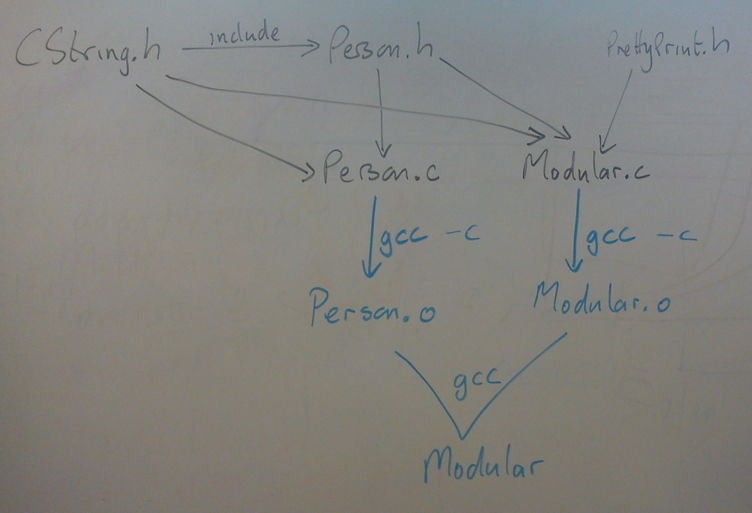 CString.h include Person.h PrettyPrint.h
Person.c Modular.c
gcc -c gcc -c
Person.o Modular.o
gcc
Modular